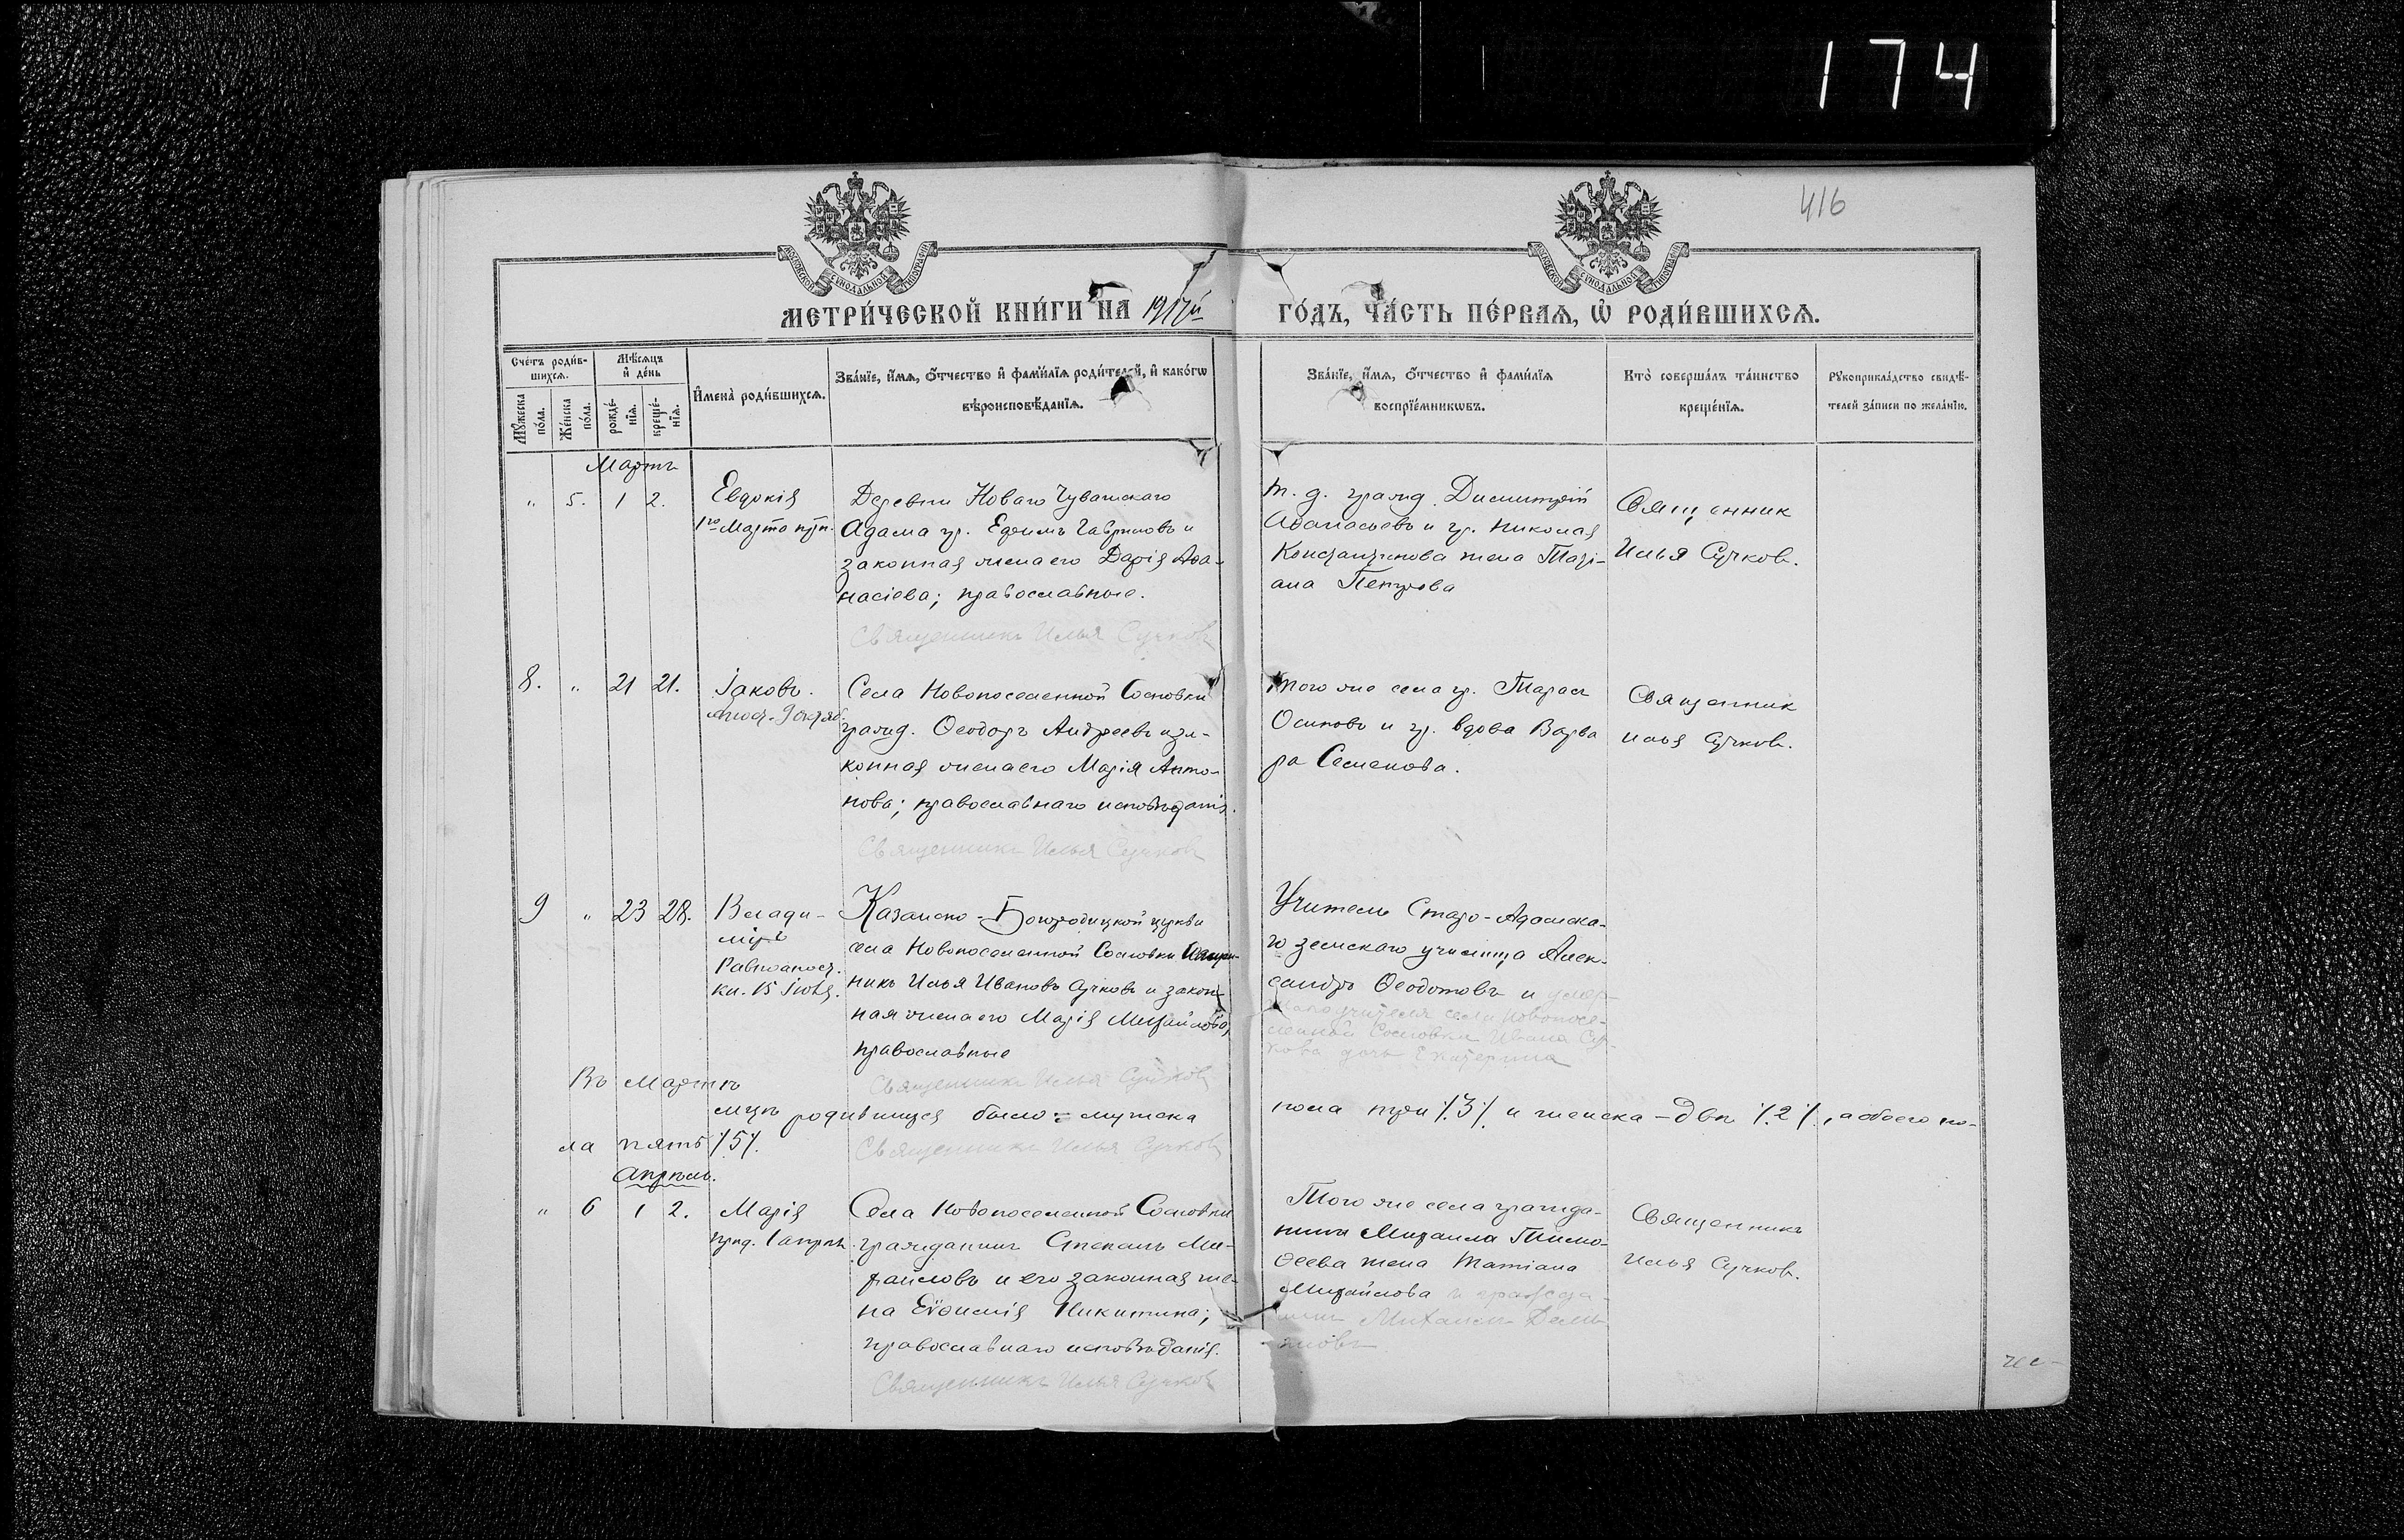 174
416
МОСКОВСКОЙ СѴНОДАЛЬНОЙ ТИПОГРАФІИ
МОСКОВСКОЙ СѴНОДАЛЬНОЙ ТИПОГРАФІИ
МЕТРИ́ЧЕСКОЙ КНИ́ГИ НА 1917й ГО́ДЪ, ЧА́СТЬ ПЕ́РВАЯ, Ѡ҆ РОДИ́ВШИХСѦ.
Сче́тъ роди́в-
шихсѧ.
Мѣ́сѧцъ
и҆ де́нь
Мꙋ́жеска
по́ла.
Же́нска
по́ла.
рожде́-
нїѧ.
креще́-
нїѧ.
И҆мена̀ роди́вшихсѧ.
Зва́нїе, и҆́мѧ, ѻ҆́тчество и҆ фами́лїѧ роди́телей, и҆ како́гѡ
вѣроисповѣ́данїѧ.
Зва́нїе, и҆́мѧ, ѻ҆́тчество и҆ фами́лїѧ
воспрїе́мникѡвъ.
Кто̀ соверша́лъ та́инство
креще́нїѧ.
Рꙋкоприкла́дство свидѣ́-
телей за́писи по жела́нїю.
Мартъ
" 5. 1 2.
Евдокія
1го Марта прп.
Деревни Новаго Чувашскаго
Адама гр. Ефимъ Гавриловъ и
законная жена его Дарія Аѳа-
насіева; православные.
Священникъ Илья Сучковъ
т. д. гражд. Димитрій
Аѳанасьевъ и гр. Николая
Константинова жена Тати-
ана Петрова
Священник
Илья Сучков.
8. " 21 21.
Іаковъ.
Апост. 9 октяб.
Села Новопоселенной Сосновки
гражд. Ѳеодоръ Андреевъ и за-
конная жена его Марія Анто-
нова; православнаго исповѣданія.
Священникъ Илья Сучковъ
Того же села гр. Тарасъ
Осиповъ и гр. вдова Варва
ра Семенова.
Священник
Илья Сучков.
9 " 23 28.
Влади-
міръ
Равноапост.
кн. 15 Іюля.
Казанско-Богородицкой церкви
села Новопоселенной Сосновки Священ-
никъ Илья Ивановъ Сучковъ и закон-
ная жена его Марія Михайлова,
православные
Священникъ Илья Сучковъ
Учитель Старо-Адамска-
го земскаго училища Алек-
сандръ Ѳеодотовъ и умер-
шаго учителя села Новопосе-
ленной Сосновки Ивана Суч-
кова дочь Екатерина
Въ Мартѣ
мцѣ родившихся было: мужска пола три /3/ и женска - двѣ /2/, а обоего по-
ла пять /5/.
Священникъ Илья Сучковъ
Апрѣль.
" 6 1 2.
Марія
прпд. 1 апрѣля.
Села Новопоселенной Сосновки
гражданинъ Степанъ Ми-
хайловъ и его законная же-
на Евѳимія Никитина;
православнаго исповѣданія.
Священникъ Илья Сучковъ
Того же села гражда-
нина Михаила Тимо-
ѳеева жена Татіана
Михайлова и гражда-
нинъ Михаилъ Демь-
яновъ
Священникъ
Илья Сучков.